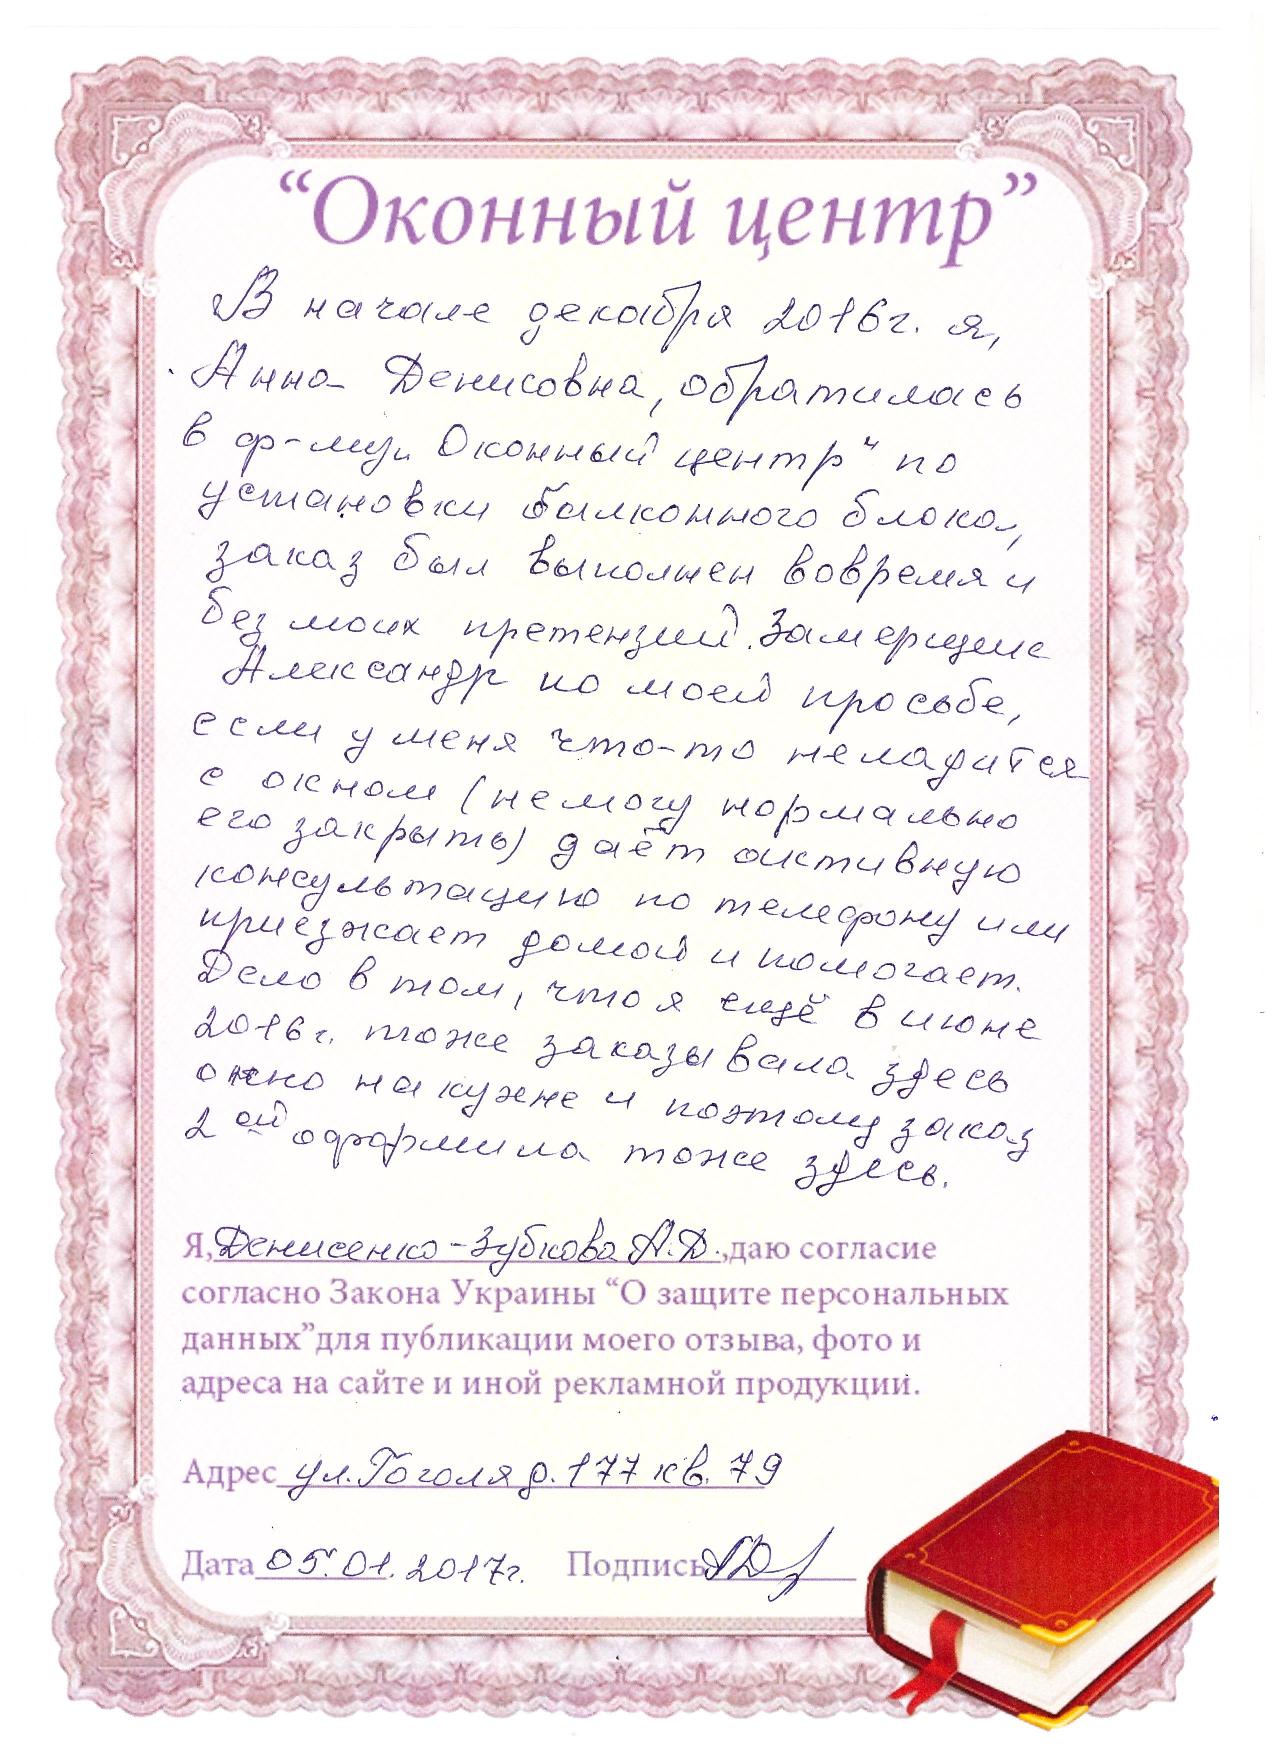 “Оконный центр”
В начале декабря 2016г. я,
Анна Денисовна, обратилась
в ф-му „Оконный центр“ по
установки балконного блока,
заказ был выполнен вовремя и
без моих претензий. Замерщик
Александр по моей просьбе,
если у меня что-то неладится
с окном (немогу нормально
его закрыть) даёт активную
консультацию по телефону или
приезжает домой и помогает.
Дело в том, что я ещё в июне
2016г. тоже заказывала здесь
окно на кухне и поэтому заказ
2ой оформила тоже здесь.
Я, Денисенко-Зубкова А.Д., даю согласие
согласно Закона Украины “О защите персональных
данных”для публикации моего отзыва, фото и
адреса на сайте и иной рекламной продукции.
Адрес ул. Гоголя д. 177 кв. 79
Дата 05.01.2017г. Подпись